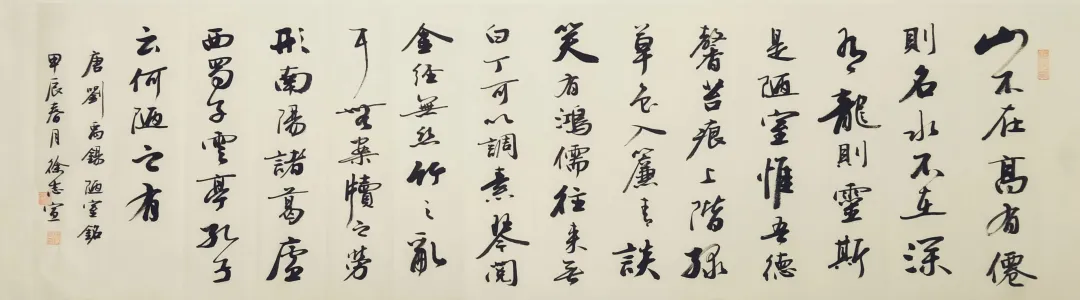 山不在高有僊
則名水不在深
有龍則靈斯
是陋室惟吾德
馨苔痕上階綠
草色入簾青談
笑有鴻儒往来无
白丁可以調素琴閱
金經無絲竹之亂
耳無案牘之勞
形南陽諸葛廬
西蜀子雲亭孔子
云何陋之有
唐劉禹錫陋室銘
甲辰春月徐宣